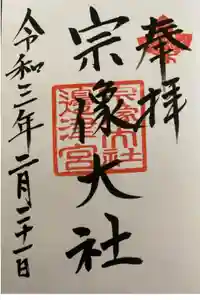 奉拝
宗像大社
宗像大社
邉津宮
令和三年二月二十一日